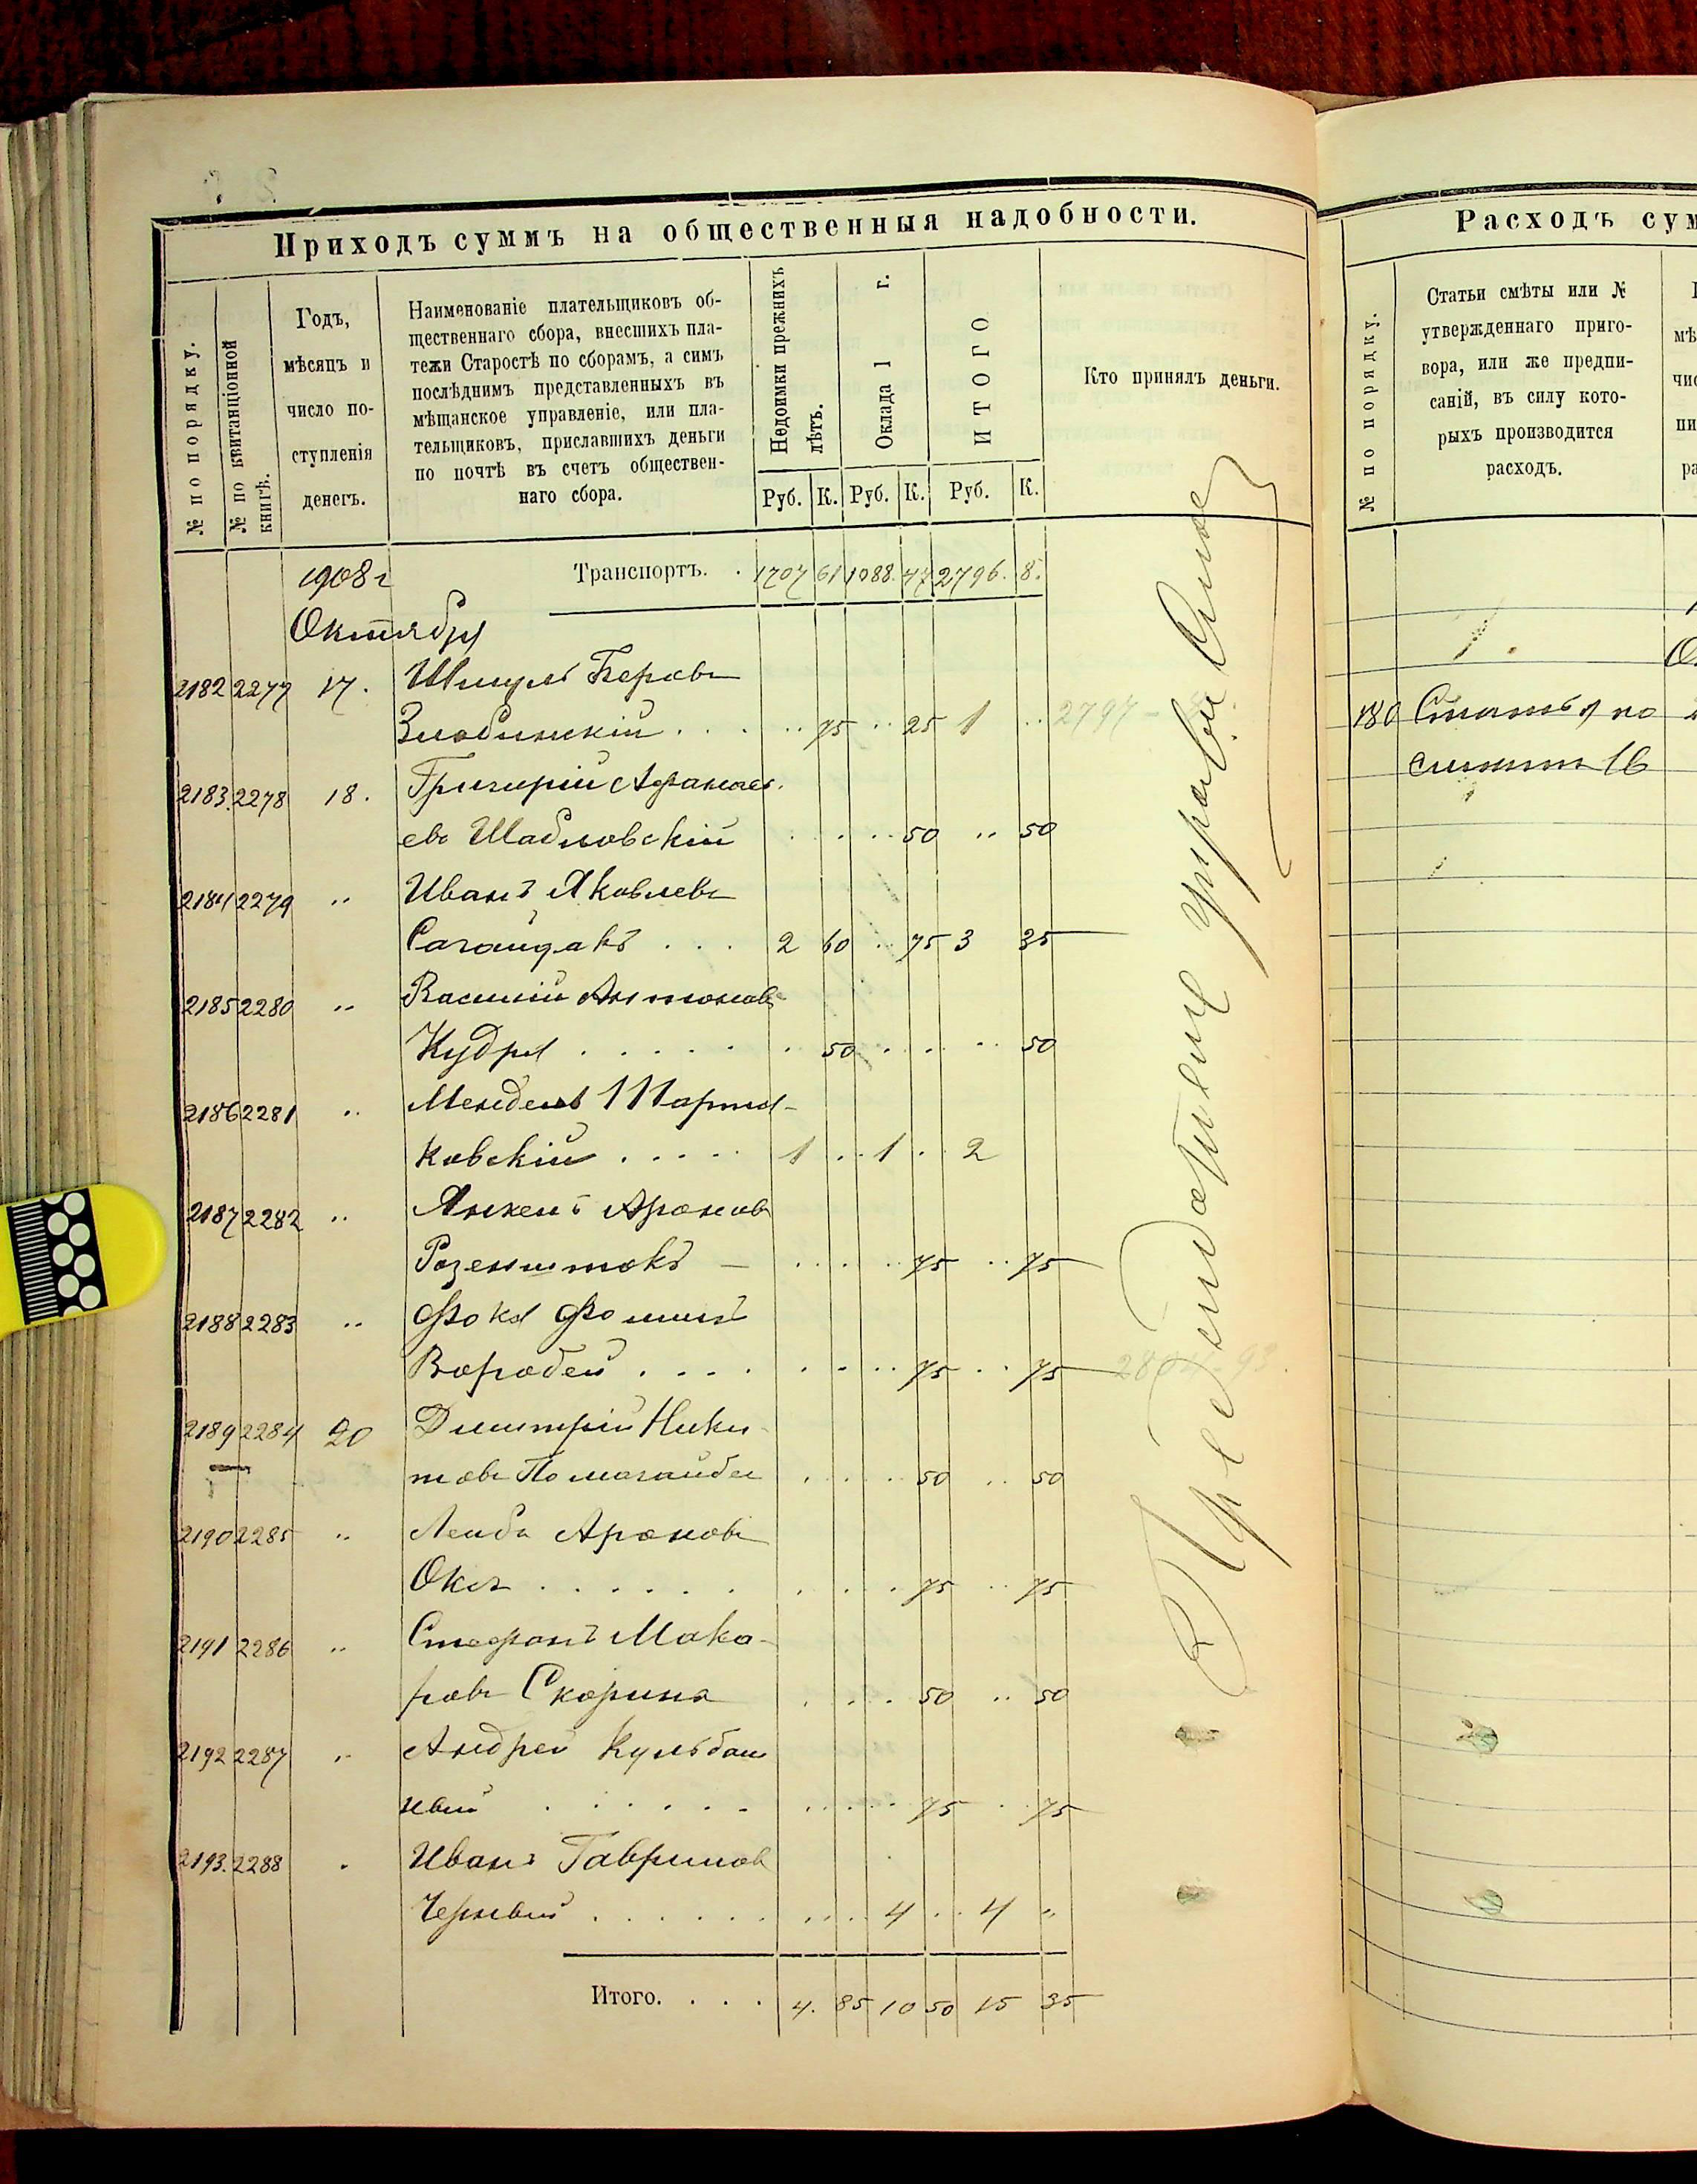 Приходъ суммъ на общественныя надобности.
№ по порядку.
№ по квитанціонной книгѣ.
Годъ,
мѣсяцъ и
число по-
ступленія
денегъ.
Наименованіе плательщиковъ об-
щественнаго сбора, внесшихъ пла-
тежи Старостѣ по сборамъ, а симъ
послѣднимъ представленныхъ въ
мѣщанское управленіе, или пла-
тельщиковъ, приславшихъ деньги
по почтѣ въ счетъ обществен-
наго сбора.
Недоимки прежнихъ лѣтъ.
Оклада 1 г.
ИТОГО
Кто принялъ деньги.
Руб. К. Руб. К. Руб. К.
1908 г Транспортъ. . 1707 61 1088. 77 2796. 8.
Октября
2182 2277 17. Шмуль Беровъ
Злобинскій . . . .. 75 .. 25 1 .. 2797
2183. 2278 18. Григорій Афанась.
евъ Шабловскій . . .. 50 .. 50
2184 2279 .. Иванъ Яковлевъ
Сагайдакъ . . . 2 60 .. 75 3 35
2185 2280 .. Василій Антоновъ
Кудря . . . . . . 50 . . .. 50
2186 2281 .. Мендель
ковскій . . . . . 1 .. 1 . . 2
2187 2282 .. Янкель Ароновъ
Розенштокъ — . . . .. 75 .. 75
2188 2283 .. Фока Фоминъ
Воробей . . . . . . .. 75 .. 75
2189 2284 20 Димитрій Ники-
товъ Помогайбо . . . . 50 .. 50
2190 2285 .. Лейба Ароновъ
Оксъ . . . . . . . . . . 75 .. 75
2191 2286 .. Стефанъ Мака-
ровъ Скорина . . . 50 .. 50
2192 2287 .. Андрей
. . . . . . . . . . 75 . . 75
2193. 2288 . Иванъ Гавриловъ
Чернявій . . . . . . . . . . 4 . . 4 "
Итого. . . . 4. 85 10 50 15 35
Расходъ сум
№ по порядку.
Статьи смѣты или №
утвержденнаго приго-
вора, или же предпи-
саній, въ силу кото-
рыхъ производится
расходъ.
мѣ
чис
пи
ра
180 Статья по
16